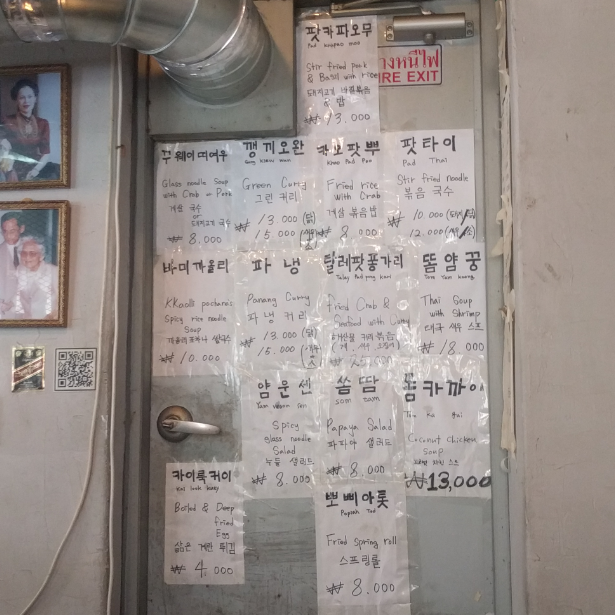 팟카파오무
Pad Krapao moo
Stir fried pork
& Basil with rice
돼지고기 바질볶음
& 밥
₩ 13.000
ทางหนีไฟ
FIRE EXIT
꾸웨이띠여우
Glass noodle soup
with Crab or Pork
게살 국수
or
돼지고기 국수
₩ 8.000
깽끼오완
Green Curry
그린 커리
₩ 13.000 (닭)
15.000
카오팟뿌
Khao Pad Poo
Fried rice
with Crab
게살 볶음밥
₩ 8.000
팟타이
Pad Thai
Stir fried noodle
볶음 국수
₩ 10.000
12.000
바미까올리
KKaoli postures
Spicy rice noodle
Soup
₩ 10.000
파냉
Panang Curry
파냉 커리
₩ 13.000 (닭)
15.000
탈레팟퐁가리
Fried Crab &
Seafood with Curry
해산물 커리 볶음
똠얌꿍
Tom Yam koong
Thai Soup
with Shrimp
태국 새우 스프
₩ 18.000
얌운센
Yam woon sen
Spicy
glass noodle
Salad
누들 샐러드
₩ 8.000
쏨땀
som tam
Papaya Salad
파파야 샐러드
₩ 8.000
똠카까이
Tom Ka Gai
Coconut Chicken
Soup
₩13,000
카이룩커이
Kai look kuey
Boiled & Deep
fried
Egg
삶은 계란 튀김
₩ 4.000
뽀삐아톳
Popiah Tod
Fried spring roll
스프링롤
₩ 8.000